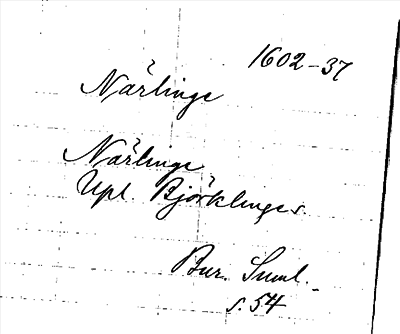 1602-37
Närlinge
Närlinge
Upl. Björklinge s.
Bur. Suml.
s. 54